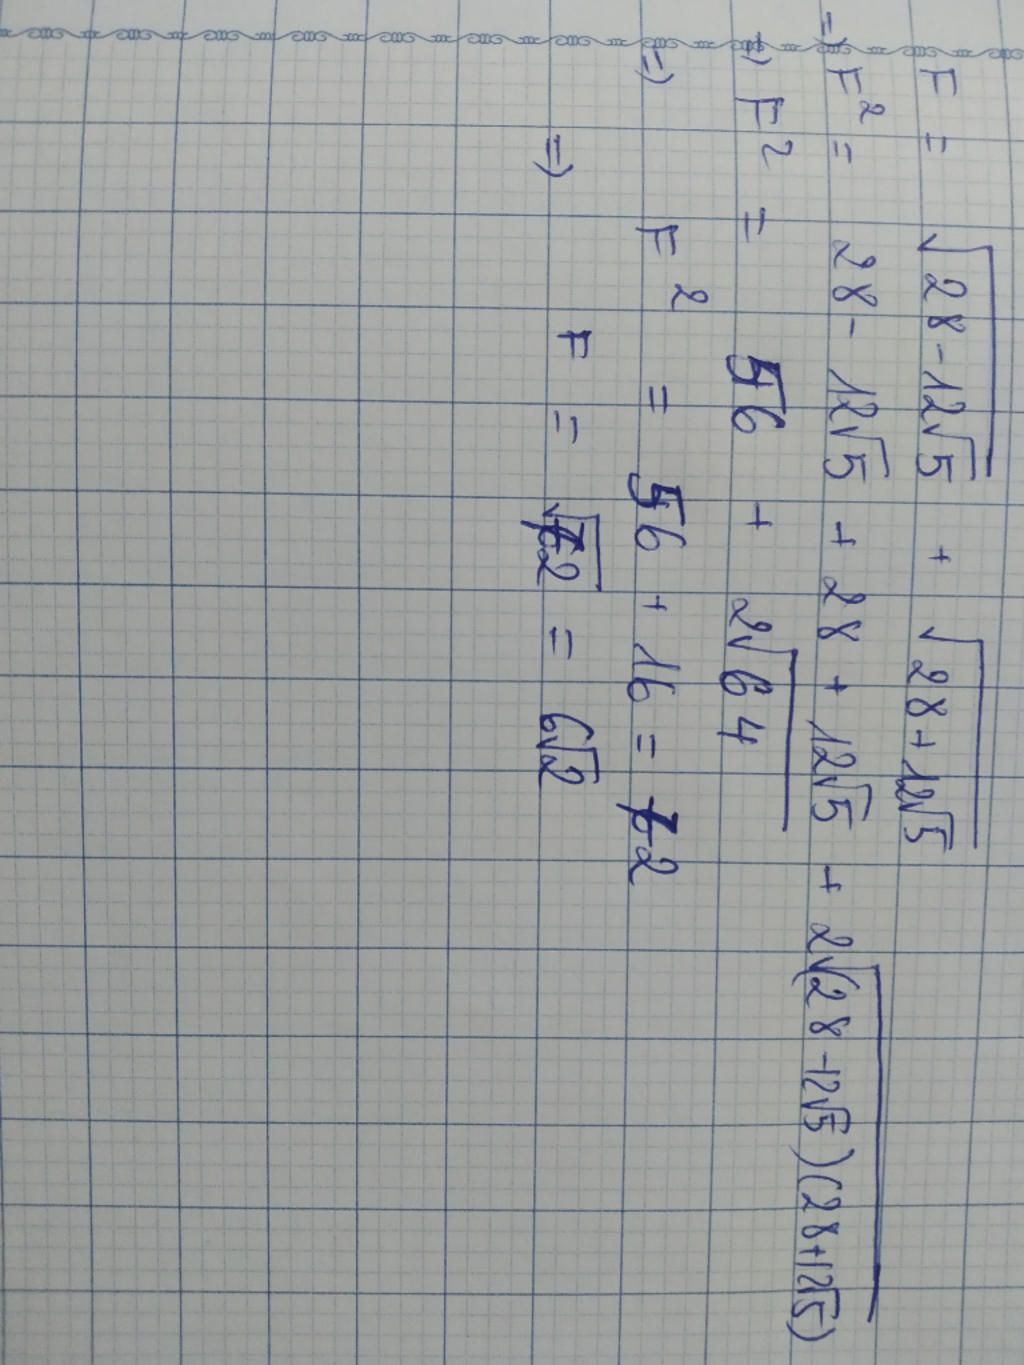 F = √(28 - 12√5) + √(28 + 12√5)
=) F² = 28 - 12√5 + 28 + 12√5 + 2√((28 - 12√5)(28 + 12√5))
=) F² = 56 + 2√64
=) F² = 56 + 16 = 72
=) F = √72 = 6√2